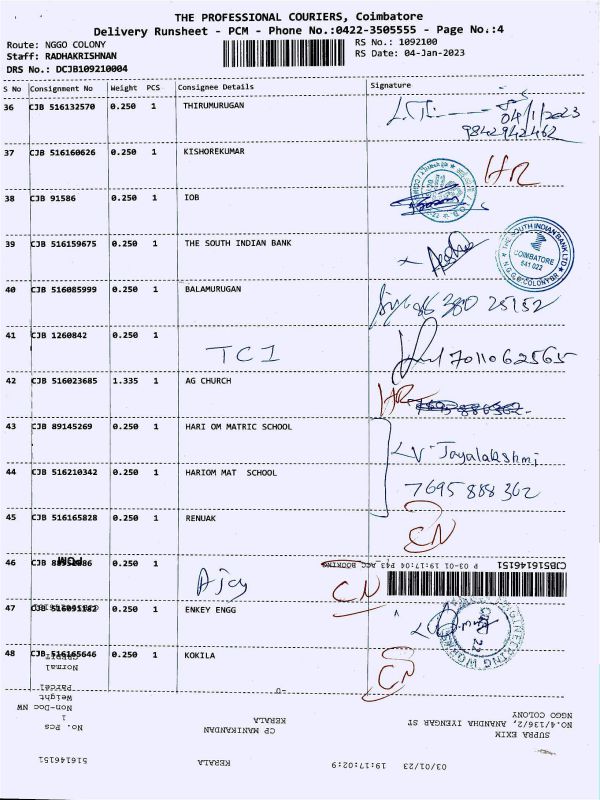 THE PROFESSIONAL COURIERS, Coimbatore
Delivery Runsheet - PCM - Phone No.:0422-3505555 - Page No.:4
Route: NGGO COLONY RS No.: 1092100
Staff: RADHAKRISHNAN RS Date: 04-Jan-2023
DRS No.: DCJB109210004
S No Consignment No Weight PCS Consignee Details Signature
36 CJB 516132570 0.250 1 THIRUMURUGAN
04/1/2023
9842942462
37 CJB 516160626 0.250 1 KISHOREKUMAR HR
38 CJB 91586 0.250 1 IOB
39 CJB 516159675 0.250 1 THE SOUTH INDIAN BANK
THE SOUTH INDIAN BANK LTD
COIMBATORE
641 022
N.G.G.O COLONY BR
40 CJB 516085999 0.250 1 BALAMURUGAN
41 CJB 1260842 0.250 1 TCI 7011062565
42 CJB 516023685 1.335 1 AG CHURCH
43 CJB 89145269 0.250 1 HARI OM MATRIC SCHOOL
Jayalakshmi
44 CJB 516210342 0.250 1 HARIOM MAT SCHOOL 7695 888 362
45 CJB 516165828 0.250 1 RENUAK CN
P 03-01 19:17:04 P43 ACC BOOKING CJB516146151
46 CJB 0.250 1 Ajay CN
PCM
47 CJB 516091182 0.250 1 ENKEY ENGG
48 CJB 516165646 0.250 1 KOKILA CN
Normal
Parcel
Weight
Non-Doc NW
1
No. Pcs
KERALA
CP MANIKANDAN
NGGO COLONY
NO.4/136/2, ANANDHA IYENGAR ST
SUPRA EXIM
516146151 KERALA 03/01/23 19:17:02:9